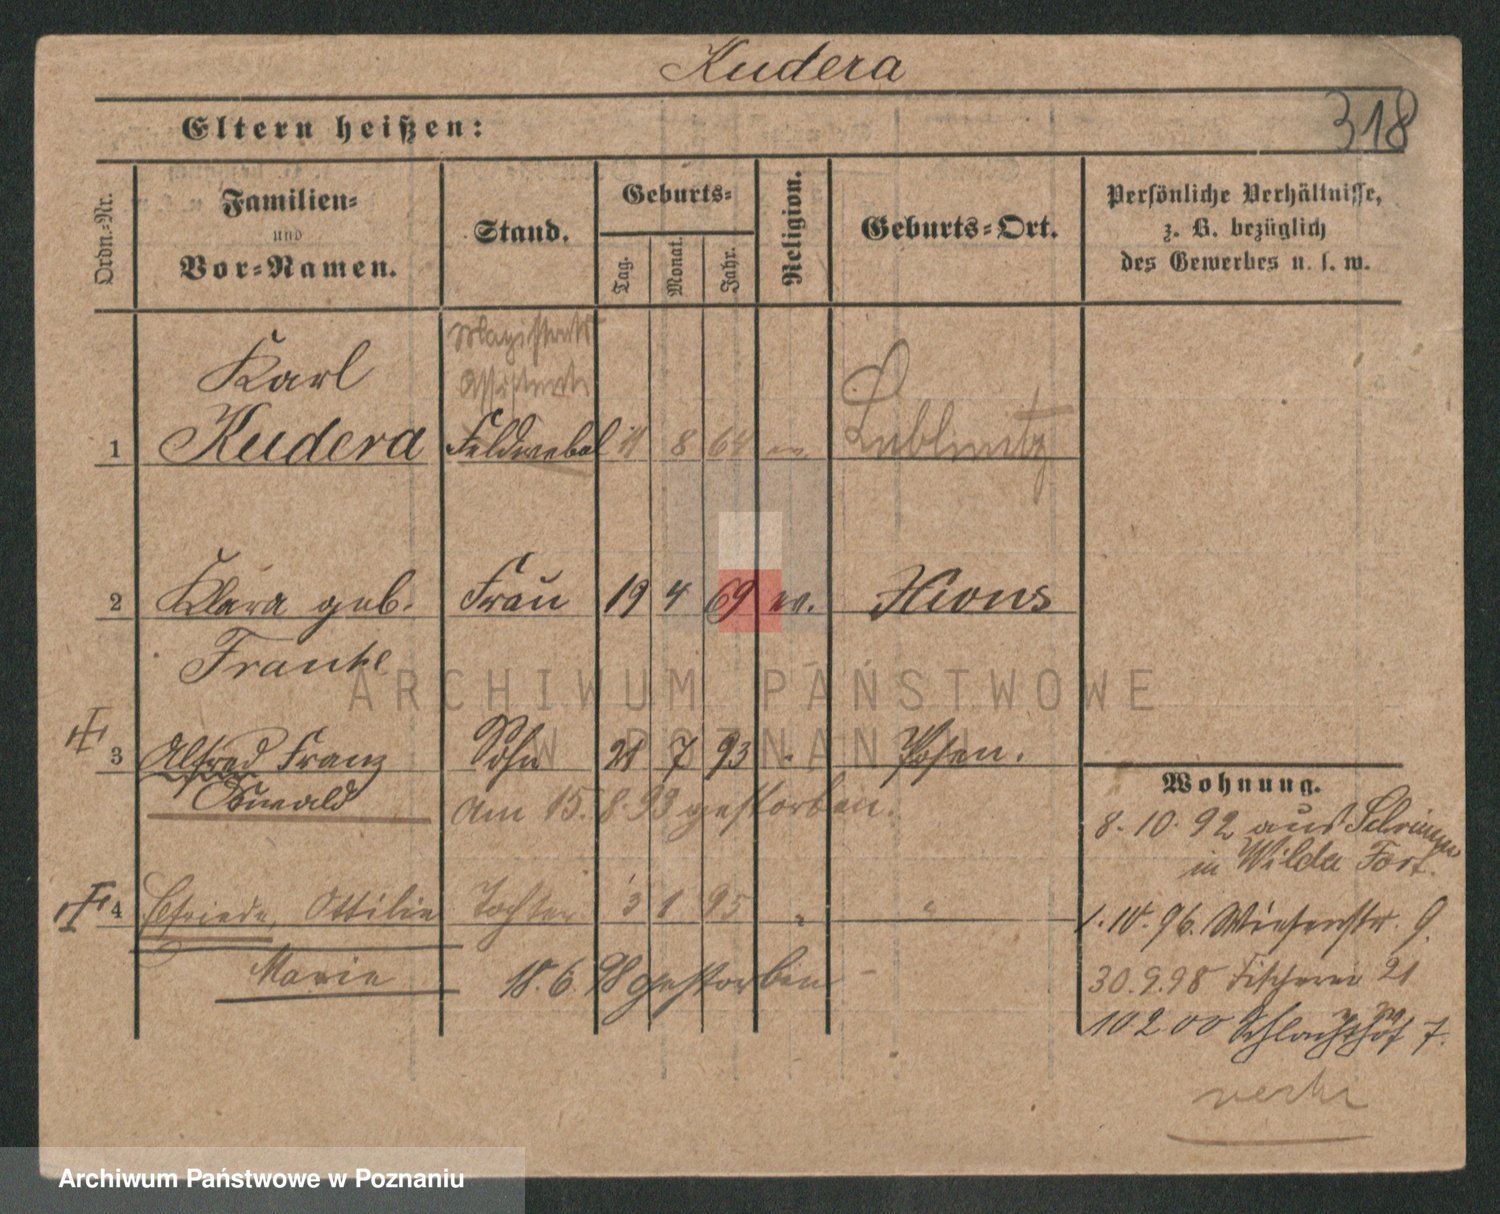 Kudera
318
Eltern heißen:
Ordn.-Nr.
Familien-
und
Vor-Namen.
Stand.
Geburts-
Tag.
Monat.
Jahr.
Religion.
Geburts-Ort.
Persönliche Verhältnisse,
z. B. bezüglich
des Gewerbes u. s. w.
Magistrats
Assistent
Karl
1 Kudera Feldwebel 11 8 64 ev. Lublinitz
2 Klara geb. Frau 19 4 69 ev. Xions
Franke
3 Alfred Franz Sohn 21 7 93 " Posen.
Oswald
am 15. 8. 93 gestorben.
4 Ottilie Tochter 3 1 95 " "
Marie
18. 6. 98 gestorben
Wohnung.
8. 10. 92 aus Schrimm
in Wilda Fort.
1. 10. 96. Wiesenstr. 9.
30. 9. 98 Fischerei 21
10 2 00 Schlachthof 7.
ARCHIWUM PAŃSTWOWE
W POZNANIU
Archiwum Państwowe w Poznaniu